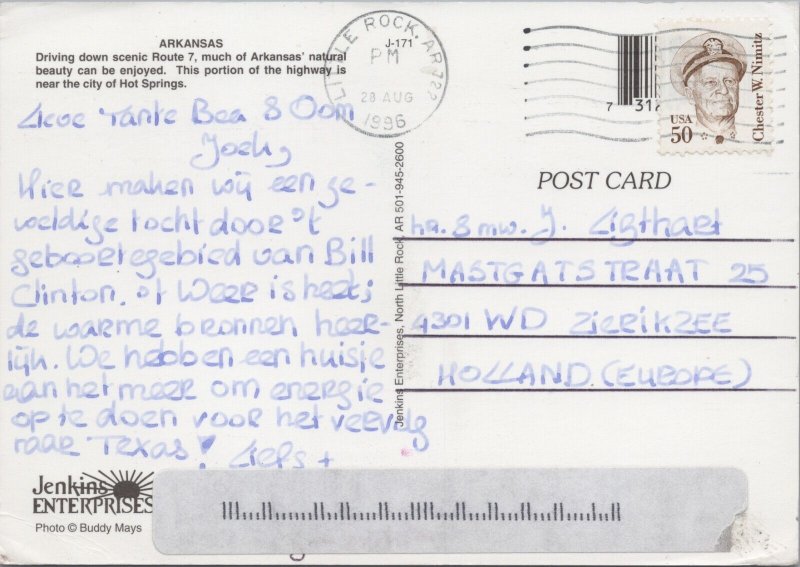 ARKANSAS
Driving down scenic Route 7, much of Arkansas' natural
beauty can be enjoyed. This portion of the highway is
near the city of Hot Springs.
J-171
LITTLE ROCK, AR 722
PM
28 AUG
1996
7 31
USA
50
Chester W. Nimitz
POST CARD
Lieve Tante Bea & Oom
Joch,
Hier maken wij een ge-
weldige tocht door 't
geboortegebied van Bill
Clinton. 't Weer is heet;
de warme bronnen heer-
lijk. We hebben een huisje
aan het meer om energie
op te doen voor het vervolg
naar Texas! Liefs +
Jenkins Enterprises, North Little Rock, AR 501-945-2600
hr. & mw. J. Ligthart
MASTGATSTRAAT 25
4301 WD ZIERIKZEE
HOLLAND. (EUROPE)
Jenkins
ENTERPRISES
Photo © Buddy Mays